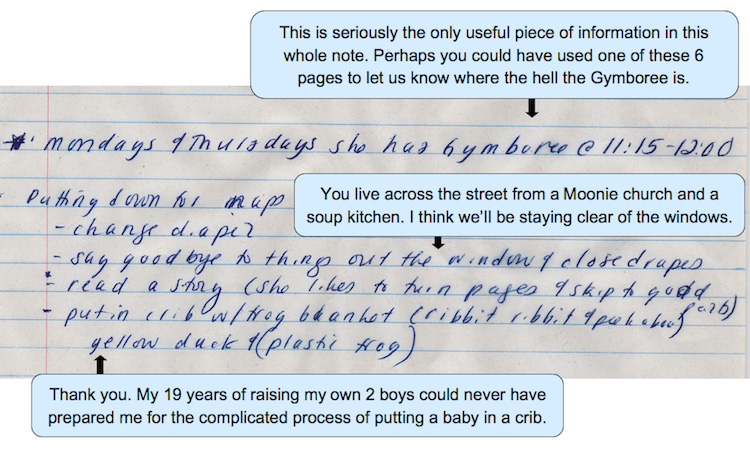 This is seriously the only useful piece of information in this
whole note. Perhaps you could have used one of these 6
pages to let us know where the hell the Gymboree is.
* mondays & Thursdays she has Gymboree @ 11:15-12:00
Putting down for naps
You live across the street from a Moonie church and a
soup kitchen. I think we'll be staying clear of the windows.
- change diaper
- say goodbye to things out the window & close drapes
- read a story (she likes to turn pages & skip to good parts)
- put in crib w/ frog blanket (ribbit ribbit & peekaboo)
yellow duck & (plastic frog)
Thank you. My 19 years of raising my own 2 boys could never have
prepared me for the complicated process of putting a baby in a crib.